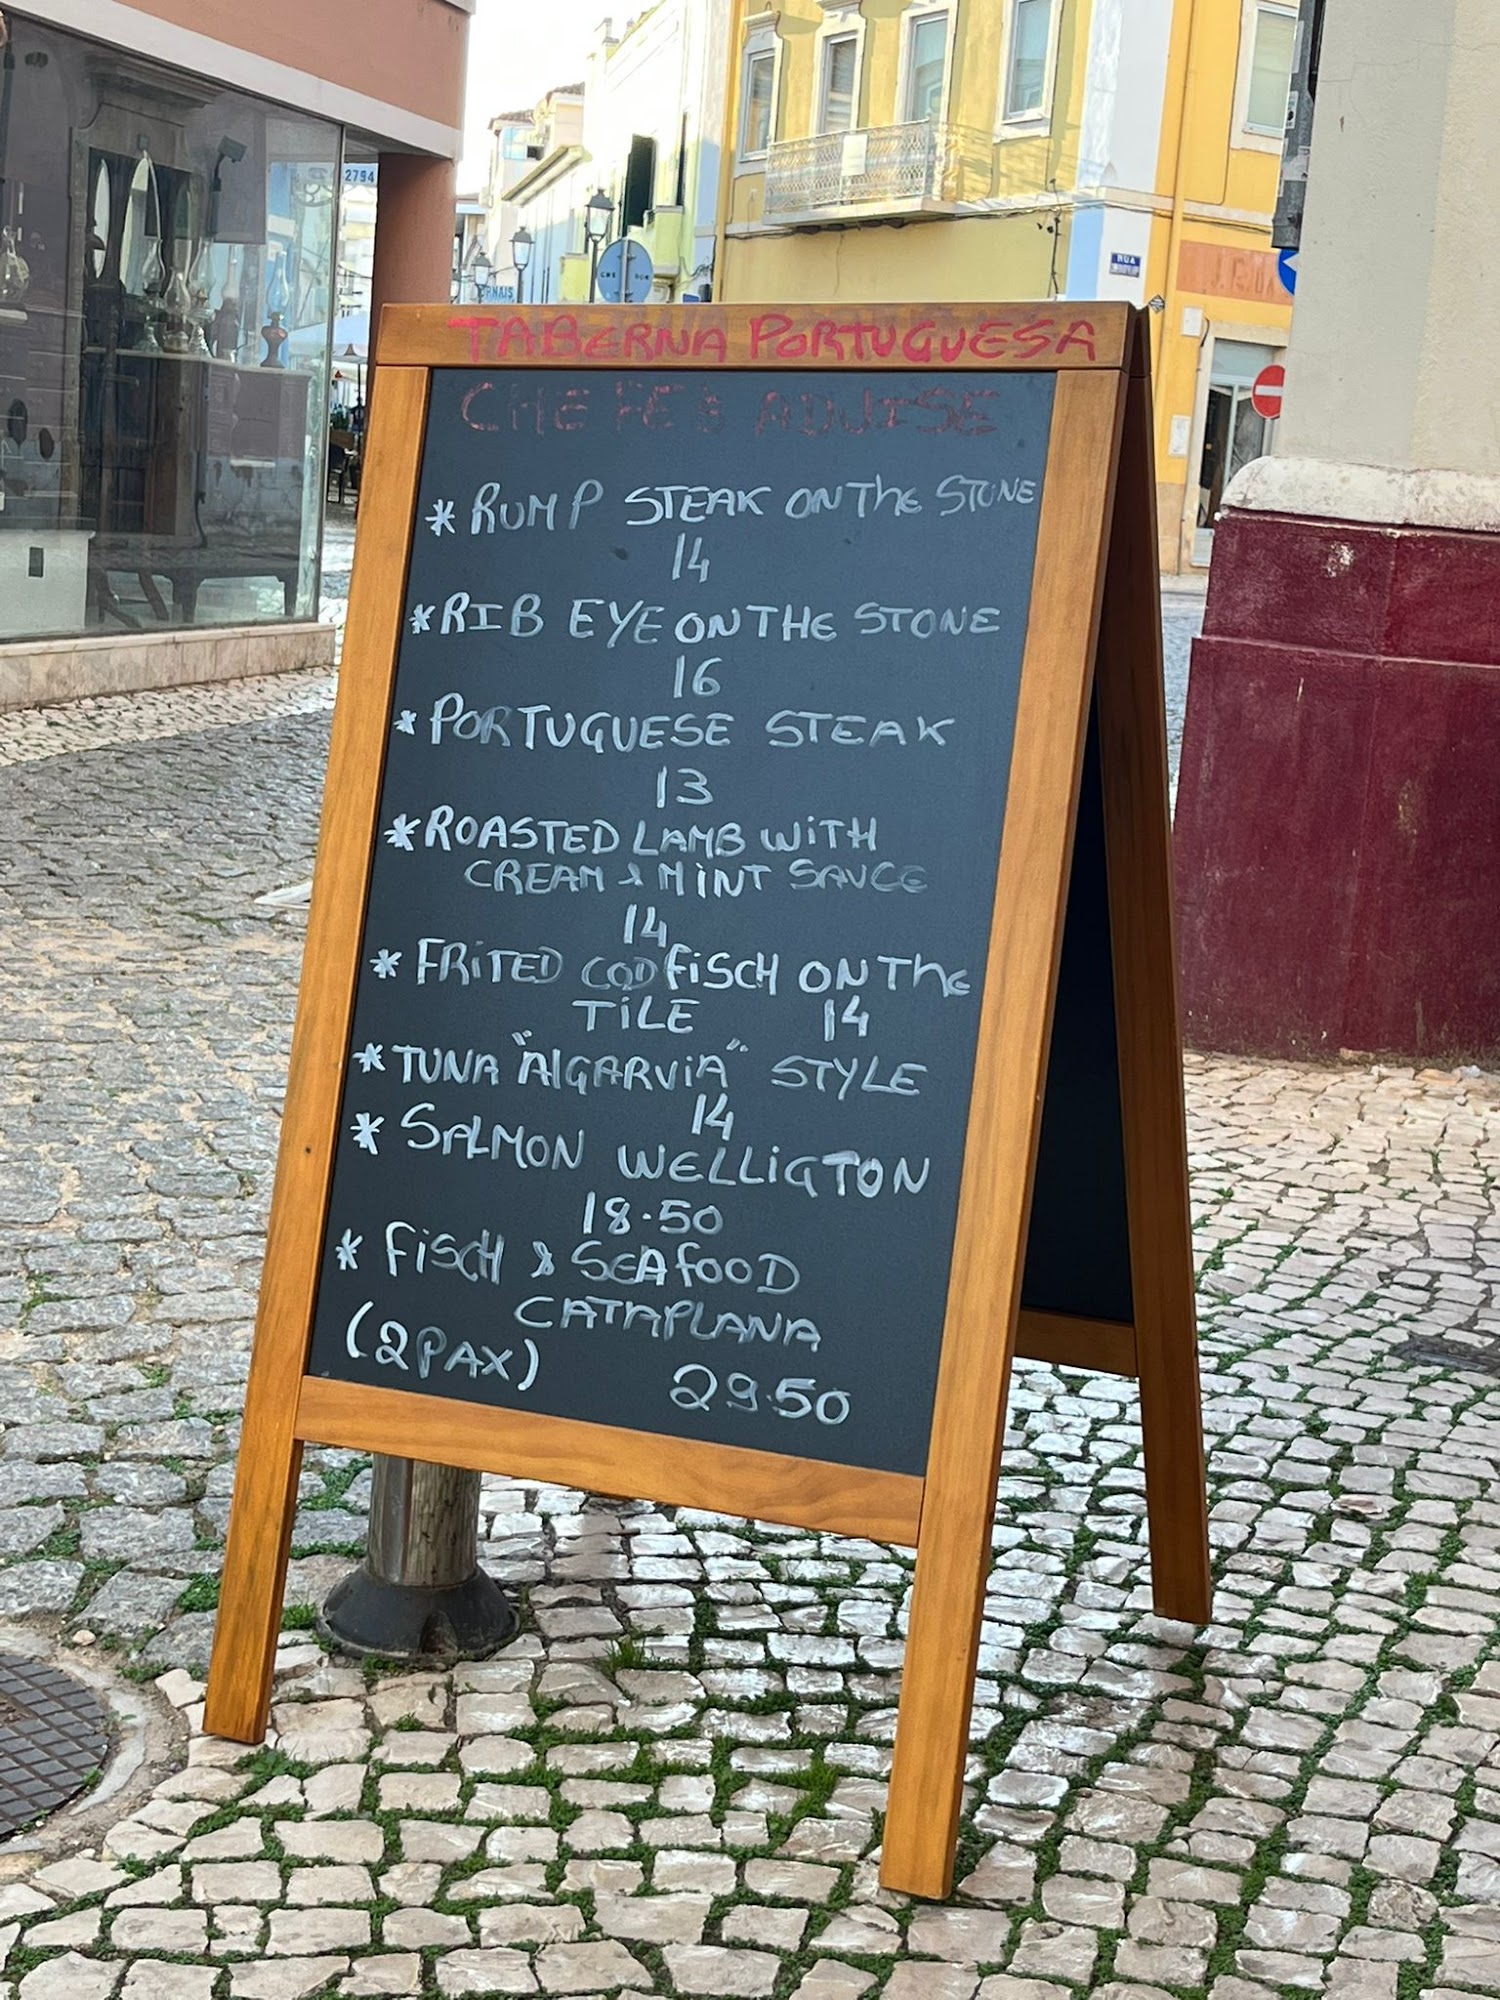 2794
RUA
TABERNA PORTUGUESA
CHEFE'S ADVISE
* RUMP STEAK ON THE STONE
14
* RIB EYE ON THE STONE
16
* PORTUGUESE STEAK
13
* ROASTED LAMB WITH
CREAM & MINT SAUCE
14
* FRITED COD FISCH ON THE
TILE 14
* TUNA "AlGARViA" STYLE
14
* SALMON WELLIGTON
18.50
* FISCH & SEAFOOD
CATAPLANA
(2PAX) 29.50